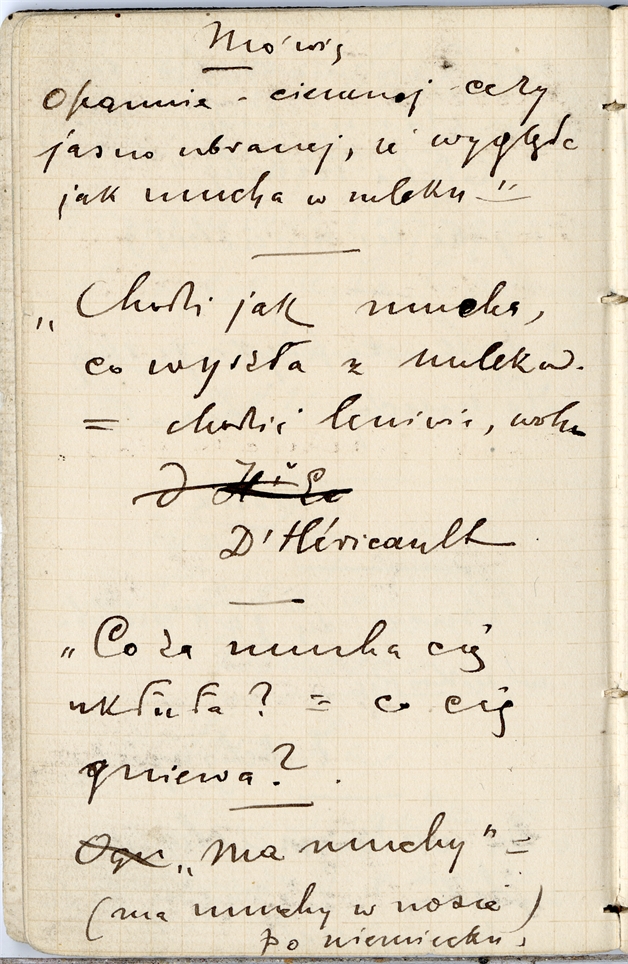 Mówią
o pannie - ciemnej cery
jasno ubranej, że wygląda
jak mucha w mleku"
„Chodzi jak mucha,
co wyszła z mleka.
= chodzić leniwie, wolno
D'Héricault
„Co za mucha cię
ukłuła? = co cię
gniewa?.
„Ma muchy" =
(ma muchy w nosie)
po niemiecku.